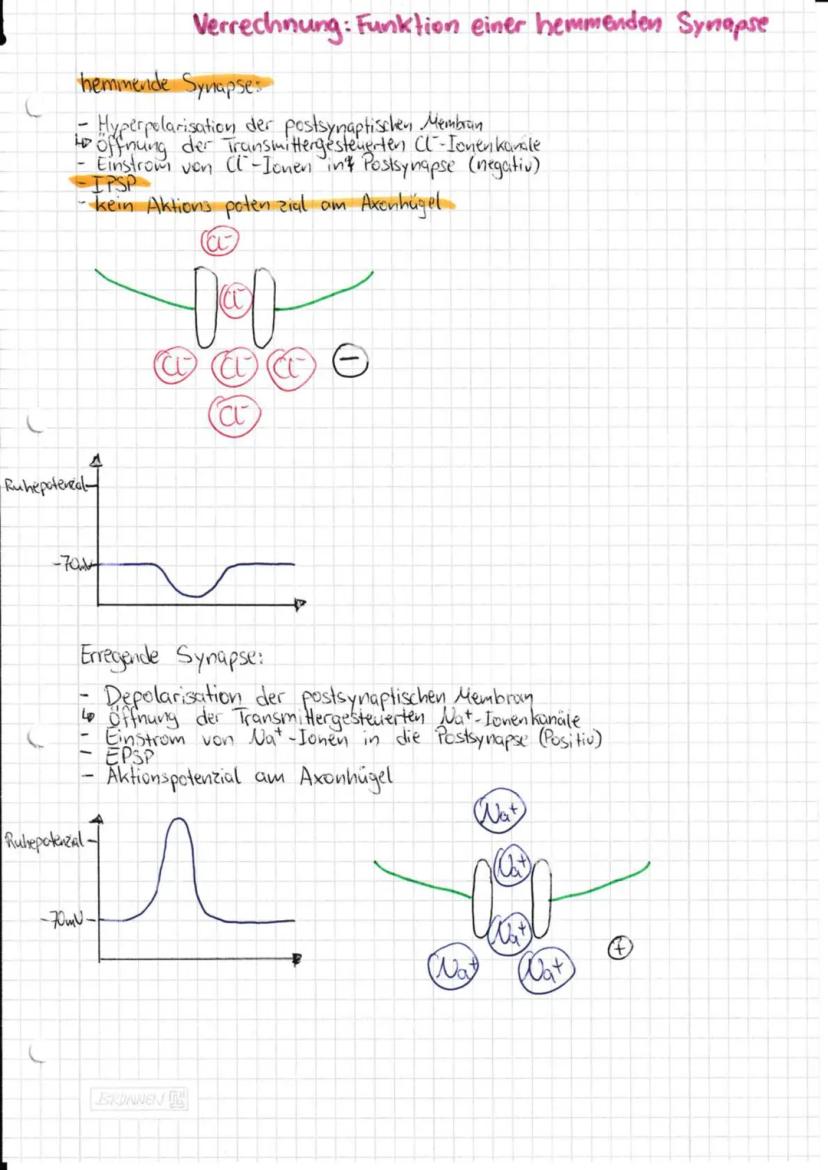 Verrechnung: Funktion einer hemmenden Synapse
hemmende Synapse:
- Hyperpolarisation der postsynaptischen Membran
↳ Öffnung der Transmittergesteuerten Cl⁻-Ionenkanäle
- Einstrom von Cl⁻-Ionen in Postsynapse (negativ)
- IPSP
- kein Aktionspotenzial am Axonhügel
Cl⁻
Cl⁻
Cl⁻ Cl⁻ Cl⁻ −
Cl⁻
Ruhepotenzial
-70mV
Erregende Synapse:
- Depolarisation der postsynaptischen Membran
↳ Öffnung der Transmittergesteuerten Na⁺-Ionenkanäle
- Einstrom von Na⁺-Ionen in die Postsynapse (Positiv)
- EPSP
- Aktionspotenzial am Axonhügel
Ruhepotenzial
-70mV
Na⁺
Na⁺
Na⁺
Na⁺ Na⁺ +
BRUNNEN